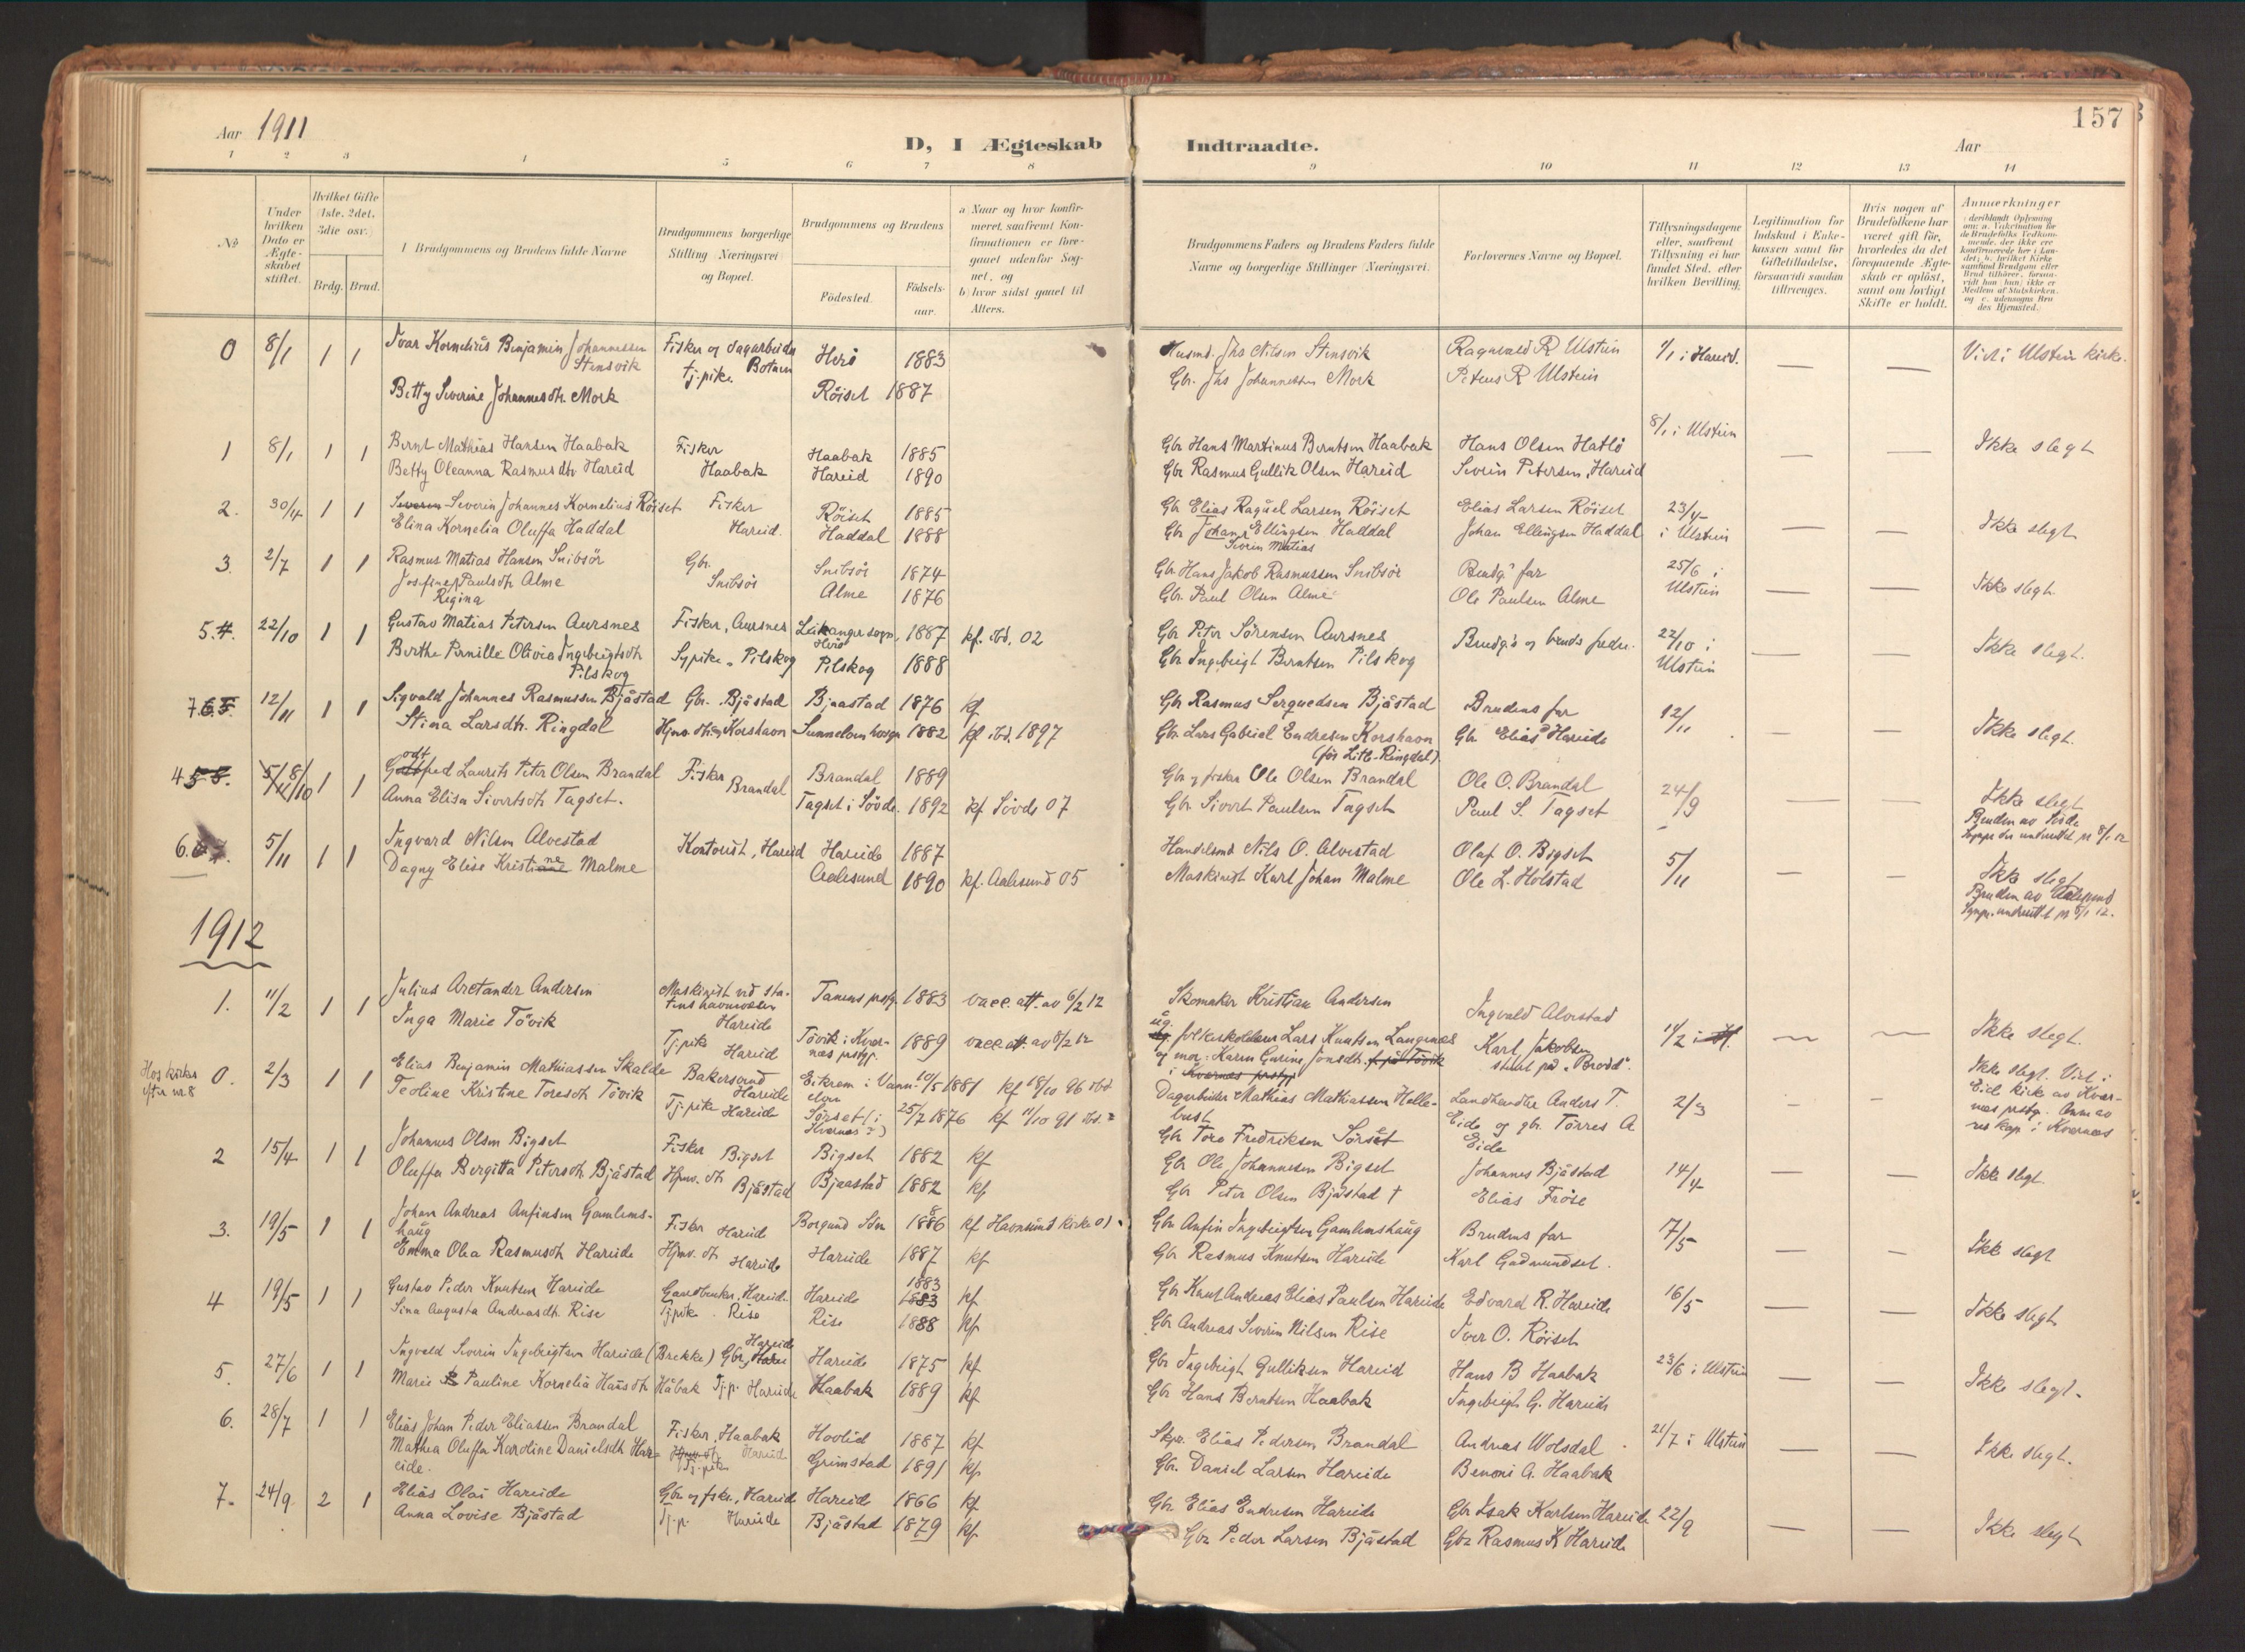 157
Aar 1911
D, I Ægteskab Indtraadte.
Aar
1 2 3 4 5 6 7 8 9 10 11 12 13 14
No
Under hvilken Dato er Ægteskabet stiftet.
Hvilket Gifte (1ste, 2det, 3die osv.)
Brdg. Brud.
Brudgommens og Brudens fulde Navne
Brudgommens borgerlige Stilling (Næringsvei) og Bopæl.
Brudgommens og Brudens
Fødested.
Fødselsaar.
a) Naar og hvor konfirmeret, saafremt Konfirmationen er foregaaet udenfor Sognet, og
b) hvor sidst gaaet til Alters.
Brudgommens Faders og Brudens Faders fulde Navne og borgerlige Stillinger (Næringsvei).
Forlovernes Navne og Bopæl.
Tillysningsdagene eller, saafremt Tillysning ei har fundet Sted, efter hvilken Bevilling.
Legitimation for Indskud i Enkekassen samt for Giftetilladelse, forsaavidt saadan tiltrænges.
Hvis nogen af Brudefolkene har været gift før, hvorledes da det foregaaende Ægteskab er opløst, samt om lovligt Skifte er holdt.
Anmerkninger
0 8/1 1 1 Ivar Kornelius Benjamin Johannessen Stensvik Fisker og dagarbeider Botnen Herö 1883 Husmd. Jhs Nilsen Stensvik Ragnvald R Ulstein 1/1 i Hareid. — — Viet i Ulstein kirke.
Betty Severine Johannesdtr. Mork tj.pike Röiset 1887 Gbr. Jhs Johannessen Mork Peteus R Ulstein
1 8/1 1 1 Bernt Mathias Hansen Haabak Fisker Haabak Haabak 1885 Gbr Hans Martinus Berntsen Haabak Hans Olsen Hatlö 8/1 i Ulstein — — Ikke slegt
Betty Oleanna Rasmusdtr Hareid Hareid 1890 Gbr Rasmus Gullik Olsen Hareid Severin Petersen, Hareid
2. 30/4 1 1 Severin Johannes Kornelius Röiset Fisker Hareid. Röiset 1885 Gbr Elias Raguel Larsen Röiset Elias Larsen Röiset 23/4 i Ulstein — — Ikke slegt
Elina Kornelia Oluffa Haddal Haddal 1888 Gbr Johan Severin Matias Ellingsen Haddal Johan Ellingsen Haddal
3. 2/7 1 1 Rasmus Matias Hansen Snibsör Gbr. Snibsör Snibsör 1874 Gbr Hans Jakob Rasmussen Snibsör Brudg.s far 25/6 i Ulstein — — Ikke slegt.
Josefine Regina Paulsdtr Alme Alme 1876 Gbr. Paul Olsen Alme Ole Paulsen Alme
5. 4. 22/10 1 1 Gustav Matias Petersen Aursnes Fisker, Aursnes Leikanger sogn, Herö 1887 kf. ibd. 02 Gbr Peter Sörensen Aursnes Brudg.s og bruds fedre. 22/10 i Ulstein — — Ikke slegt.
Berthe Pernille Olivia Ingebrigtsdtr Pilskog Sypike, Pilskog Pilskog 1888 Gbr Ingebrigt Berntsen Pilskog
7. 6. 5. 12/11 1 1 Sigvald Johannes Rasmussen Bjåstad Gbr. Bjåstad Bjaastad 1876 kf Gbr Rasmus Bjåstad Brudens far 12/11 — — Ikke slegt.
Stina Larsdtr. Ringdal Korshavn 1882 kf ibd. 1897 Gbr. Lars Gabriel Endresen Korshavn (før Litl-Ringdal) Gbr Elias Hareide
4 5 8. 8/10 1 1 Gotfred Laurits Peter Olsen Brandal Fisker Brandal Brandal 1889 Gbr og fisker Ole Olsen Brandal Ole O. Brandal 24/9 — — Ikke slegt
Anna Elisa Sivertsdtr Tagset. Tagset i Sövde. 1892 kf Sövde 07 Gbr. Sivert Paulsen Tagset Paul S. Tagset Bruden av Sövde
6. 5/11 1 1 Ingvard Nilsen Alvestad Kontorist, Hareid Hareide 1887 Handelsmd Nils O. Alvestad Olaf O. Bigset 5/11 — — Ikke slegt
Dagny Elise Kristine Malme Aalesund 1890 kf. Aalesund 05 Maskinist Karl Johan Malme Ole L. Holstad Bruden av Aalesund
1912
1. 11/2 1 1 Julius Arctander Andersen Maskinist ved statens havnvæsen Hareide Tanens prstgj. 1883 vacc. att. av 6/2 12 Skomaker Kristian Andersen Ingvald Alvestad 11/2 — — Ikke slegt.
Inga Marie Tövik Tj.pike Hareid Tövik i Kvernes prstgj. 1889 vacc. att. av 8/2 12 Lars Knutsen Langenes og mor: Karen Gurine Jonsdtr. Karl Jakobsen
Hos kirke efter nr 8 0. 2/3 1 1 Elias Benjamin Mathiassen Skalde Bakersvend Hareide Eikrem i Vannelven 10/5 1881 kf 18/10 96 ibd Dagarbeider Mathias Mathiassen Hellebust Landhandler Anders T. Eide og gbr. Törres A Eide 2/3 — — Ikke slegt. Viet i Eid kirke av Kvernes prstgj.
Teoline Kristine Toresdtr Tövik Tj.pike Hareide Sörset (i Kvernes?) 25/7 1876 kf 11/10 91 Gbr Tore Fredriksen Sörset
2 15/4 1 1 Johannes Olsen Bigset Fisker Bigset Bigset 1882 kf Gbr Ole Johannesen Bigset Johannes Bjåstad 14/4 — — Ikke slegt
Oluffa Bergitta Petersdtr Bjåstad Hjmv. dtr Bjåstad Bjaastad 1882 kf Gbr Peter Olsen Bjåstad † Elias Fröse
3. 19/5 1 1 Johan Andreas Anfinsen Gamlemshaug Fisker Hareid Borgund Sön 1886 kf Havnsund kirke 01 Gbr Anfin Ingebrigtsen Gamlemshaug Brudens far 17/5 — — Ikke slegt
Emma Olea Rasmusdtr Hareide Hjmv. dtr Hareide Hareide 1887 kf Gbr Rasmus Knutsen Hareide Karl Gudmundset.
4 19/5 1 1 Gustav Peder Knutsen Hareide Hareide Hareide 1883 kf Gbr Knut Andreas Elias Paulsen Hareide Edvard R. Hareide 16/5 — — Ikke slegt
Sina Augusta Andreasdtr. Rise Tjpike. Rise Rise 1888 kf Gbr Andreas Severin Nilsen Rise Iver O. Röiset
5. 27/6 1 1 Ingvald Severin Ingebrigtsen Hareide (Brekke) Gbr, Hareide Hareide 1875 kf Gbr Ingebrigt Gulliksen Hareid Hans B Haabak 23/6 i Ulstein — — Ikke slegt.
Marie Pauline Kornelia Hansdtr Håbak Tj.p. Hareide Haabak 1889 kf Gbr Hans Berntsen Haabak Ingebrigt G. Hareide
6. 28/7 1 1 Elias Johan Peder Eliassen Brandal Fisker, Haabak Hovlid 1887 kf Skpr. Elias Pedersen Brandal Andreas Wolsdal 21/7 i Ulstein — — Ikke slegt.
Mathea Oluffa Karoline Danielsdtr Hareide. Tj.pike Hareid Grimstad 1891 kf Gbr. Daniel Larsen Hareide Benoni A. Haabak
7. 24/9 2 1 Elias Olai Hareide Gbr og fsker, Hareid Hareid 1866 kf Gbr. Elias Endresen Hareide Gbr Isak Karlsen Hareide 22/9 — — Ikke slegt
Anna Lovise Bjåstad Tj.p. Hareide Bjåstad 1879 kf Gbr Peder Larsen Bjåstad Gbr Rasmus K Hareide